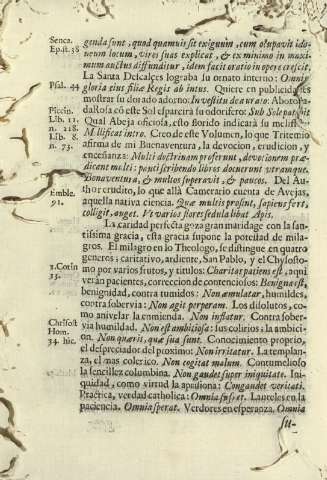 Senec.
Epist. 38
genda sunt, quod quamuis sit exiguum, cum occupavit ido-
neum locum, vires suas explicat, & ex minimo in maxi-
mum auctus diffunditur, idem facit oratio in opere crescit.
La Santa Descalçes lograba su ornato interno: Omnis
Psal. 44
gloria eius filiæ Regis ab intus. Quiere en publicidades
mostrar su dorado adorno: In vestitu deaurato. Aboto
da Rosa cõ este Sol esparcirà su odorifero: Sub Sole
Picein.
Lib. 11.
n. 218.
Lib. 8.
n. 73.
Qual Abeja oficiosa, esto florido indicarà su
Mellificat intro. Creo de este Volumen, lo que Tritemio
afirma de mi Buenaventura, la devocion, erudicion, y
enceñanza: Multi doctrinam proferunt, devotionem præ-
dicant multi: pauci scribendo libros docuerunt vtramque.
Bonaventura, & multos superavit, & paucos. Del Au-
thor erudito, lo que allà Camerario cuenta de Avejas,
Emble.
91.
aquella nativa ciencia. Quæ multis prosint, sapiens fert,
colligit, auget. Vt varios flores sedula libat Apis.
La caridad perfecta goza gran maridage con la san-
tissima gracia, esta gracia supone la potestad de mila-
gros. El milagro en lo Theologo, se distingue en quatro
generos; caritativo, ardiente, San Pablo, y el Chrysosto-
1. Corin
13.
mo por varios frutos, y titulos: Charitas patiens est, aqui
veràn pacientes, correccion de contenciosos: Benigna est,
benignidad, contra tumidos: Non æmulatur, humildes,
contra sobervia: Non agit perperam. Los disolutos, co-
mo anivelar la enmienda. Non inflatur. Contra sober-
Chrisost
Hom.
34. hic.
via humildad. Non est ambitiosa: sus colirios: la ambici-
on. Non quærit, quæ sua sunt. Conocimiento proprio,
el despreciador del proximo: Non irritatur. La templan-
za, el mas colerico. Non cogitat malum. Contumelioso
la sencillez columbina. Non gaudet super iniquitate. Ini-
quidad, como virtud la apasiona: Congaudet veritati.
Practica, verdad catholica: Omnia sufert. Laureles en la
paciencia. Omnia sperat. Verdores en esperanza. Omnia
su-